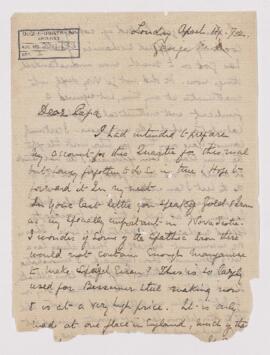 London, April 14, 72.
George
Dear Papa
I had intended to prepare
my account for this Quarter for this mail
but having forgotten to do so in time I hope to
forward it in my next.
In your last letter you speak of Gold &
as my specially important in Nova Scotia.
I wonder if some of the Spathic Iron there
would not contain enough manganese
to make Spiegel Eisen? This is so largely
used for Bessemer steel making now
it is at a very high price. It is only
made at one place in England, much of the